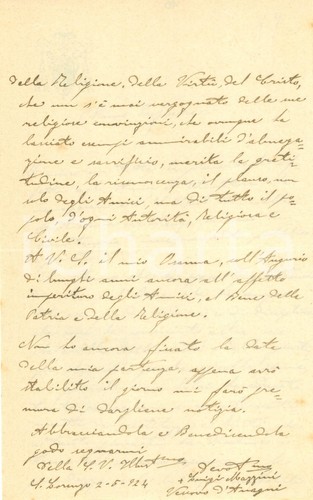 della Religione, della Virtù, del Cristo,
che non s'è mai vergognato delle sue
religiose convinzioni, che ovunque ha
lasciato esempi ammirabili d'abnega-
zione e sacrificio, merita la grati-
tudine, la riconoscenza, il plauso, non
solo degli Amici, ma di tutto il po-
polo, d'ogni Autorità, Religiosa e
Civile!
A V. S. il mio Osanna, coll'Augurio
di lunghi anni ancora all'affetto
imperituro degli Amici, al Bene della
Patria e della Religione.
Non ho ancora fissato la data
della mia partenza, appena avrò
stabilito il giorno mi farò pre-
mura di dargliene notizia.
Abbracciandola e Benedicendola
godo segnarmi
Della S. V. Ill
S. Lorenzo 2-5-924
+ Luigi Mazzini
Vescovo d'Anagni